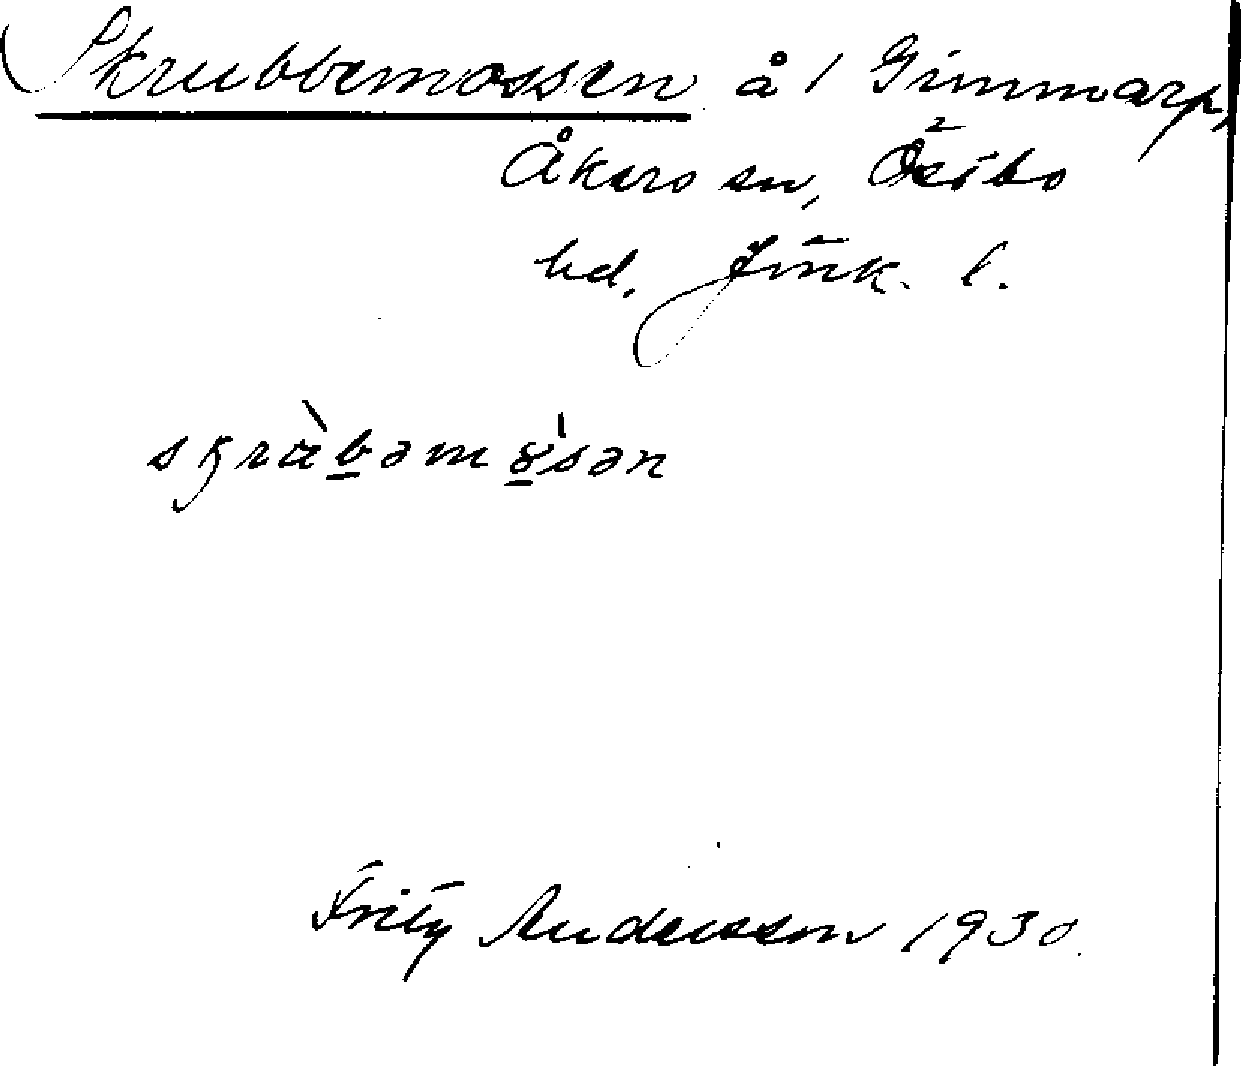 Skrubbemossen å / Gimmarp,
Åkers sn, Östbo
hd, Jönk. l.
skrαbəmɤsən
Fritz Andersson 1930.